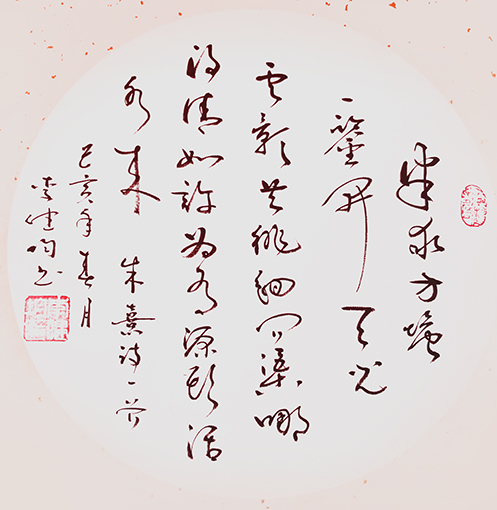 半亩方塘
一鑒开天光
云影共徘徊问渠哪
得清如许为有源头活
水来 朱熹诗一首
己亥年春月
书